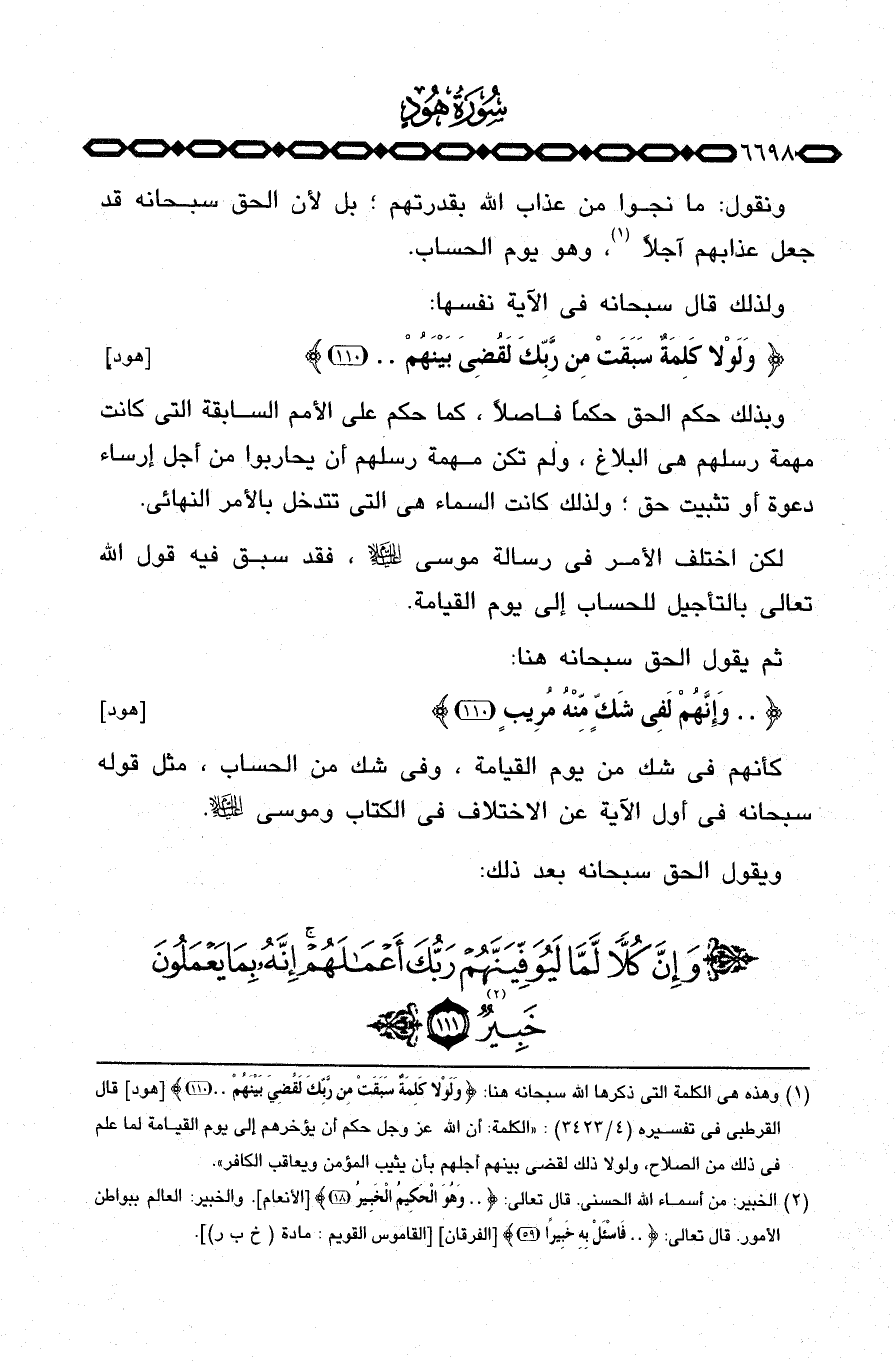 سُورَةُ هُودٍ
٦٦٩٨
ونقول: ما نجـوا من عذاب الله بقدرتهم ؛ بل لأن الحق سبـحانه قد
جعل عذابهم آجلاً (١)، وهو يوم الحساب.
ولذلك قال سبحانه فى الآية نفسها:
﴿ وَلَوْلا كَلِمَةٌ سَبَقَتْ مِن رَّبِّكَ لَقُضِيَ بَيْنَهُمْ .. (١١٠) ﴾ [هود]
وبذلك حكم الحق حكماً فـاصلاً ، كما حكم على الأمم السـابقة التى كانت
مهمة رسلهم هى البلاغ ، ولم تكن مـهمة رسلهم أن يحاربوا من أجل إرساء
دعوة أو تثبيت حق ؛ ولذلك كانت السماء هى التى تتدخل بالأمر النهائى.
لكن اختلف الأمـر فى رسالة موسى عليه السلام ، فقد سبـق فيه قول الله
تعالى بالتأجيل للحساب إلى يوم القيامة.
ثم يقول الحق سبحانه هنا:
﴿ .. وَإِنَّهُمْ لَفِي شَكٍّ مِّنْهُ مُرِيبٍ (١١٠) ﴾ [هود]
كأنهم فى شك من يوم القيامة ، وفى شك من الحساب ، مثل قوله
سبحانه فى أول الآية عن الاختلاف فى الكتاب وموسى عليه السلام.
ويقول الحق سبحانه بعد ذلك:
﴿ وَإِنَّ كُلًّا لَّمَّا لَيُوَفِّيَنَّهُمْ رَبُّكَ أَعْمَـٰلَهُمْ ۚ إِنَّهُۥ بِمَا يَعْمَلُونَ
خَبِيرٌ (٢) (١١١) ﴾
(١) وهذه هى الكلمة التى ذكرها الله سبحانه هنا: ﴿ وَلَوْلا كَلِمَةٌ سَبَقَتْ مِن رَّبِّكَ لَقُضِيَ بَيْنَهُمْ .. (١١٠) ﴾ [هود] قال
القرطبى فى تفسـيره (٣٤٢٣/٤) : «الكلمة: أن الله عز وجل حكم أن يؤخرهم إلى يوم القيـامة لما علم
فى ذلك من الصلاح، ولولا ذلك لقضى بينهم أجلهم بأن يثيب المؤمن ويعاقب الكافر».
(٢) الخبير: من أسمـاء الله الحسنى. قال تعالى: ﴿ .. وَهُوَ الْحَكِيمُ الْخَبِيرُ (١٨) ﴾ [الأنعام]. والخبير: العالم ببواطن
الأمور. قال تعالى: ﴿ .. فَاسْئَلْ بِهِ خَبِيرًا (٥٩) ﴾ [الفرقان] [القاموس القويم : مادة ( خ ب ر)].